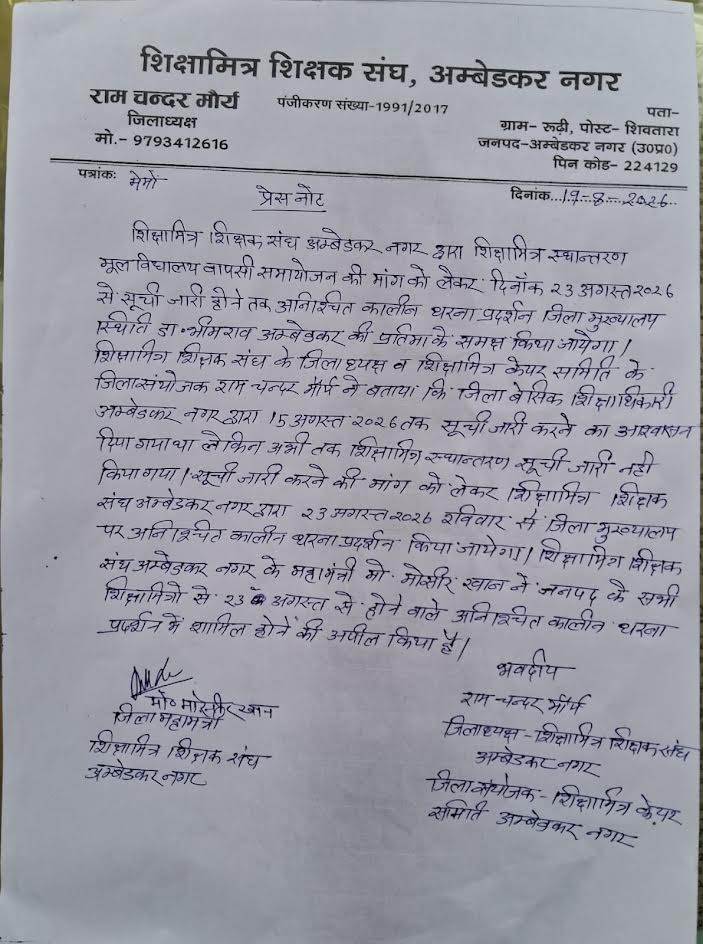 शिक्षामित्र शिक्षक संघ, अम्बेडकर नगर
राम चन्दर मौर्य
जिलाध्यक्ष
मो.- 9793412616
पंजीकरण संख्या-1991/2017
पता-
ग्राम- रुढ़ी, पोस्ट- शिवतारा
जनपद-अम्बेडकर नगर (उ0प्र0)
पिन कोड- 224129
पत्रांकः मेमो-
दिनांक...19-8-2026..
प्रेस नोट
शिक्षामित्र शिक्षक संघ अम्बेडकर नगर द्वारा शिक्षामित्र स्थान्तरण
मूल विद्यालय वापसी समायोजन की मांग को लेकर दिनाँक 23 अगस्त 2026
से सूची जारी होने तक अनिश्चित कालीन धरना प्रदर्शन जिला मुख्यालय
स्थिति डा. भीमराव अम्बेडकर की प्रतिमा के समक्ष किया जायेगा।
शिक्षामित्र शिक्षक संघ के जिलाध्यक्ष व शिक्षामित्र केयर समिति के
जिलासंयोजक राम चन्दर मौर्य ने बताया कि जिला बेसिक शिक्षाधिकारी
अम्बेडकर नगर द्वारा 15 अगस्त 2026 तक सूची जारी करने का आश्वासन
दिया गया था लेकिन अभी तक शिक्षामित्र स्थान्तरण सूची जारी नही
किया गया। सूची जारी करने की मांग को लेकर शिक्षामित्र शिक्षक
संघ अम्बेडकर नगर द्वारा 23 अगस्त 2026 रविवार से जिला मुख्यालय
पर अनिश्चित कालीन धरना प्रदर्शन किया जायेगा। शिक्षामित्र शिक्षक
संघ अम्बेडकर नगर के महामंत्री मो. मोसीर खान ने जनपद के सभी
शिक्षामित्रो से 23 अगस्त से होने वाले अनिश्चित कालीन धरना
प्रदर्शन में शामिल होने की अपील किया है।
भवदीय
राम चन्दर मौर्य
जिलाध्यक्ष - शिक्षामित्र शिक्षक संघ
अम्बेडकर नगर
जिला संयोजक - शिक्षामित्र केयर
समिति अम्बेडकर नगर
मो० मोसीर खान
जिला महामंत्री
शिक्षामित्र शिक्षक संघ
अम्बेडकर नगर